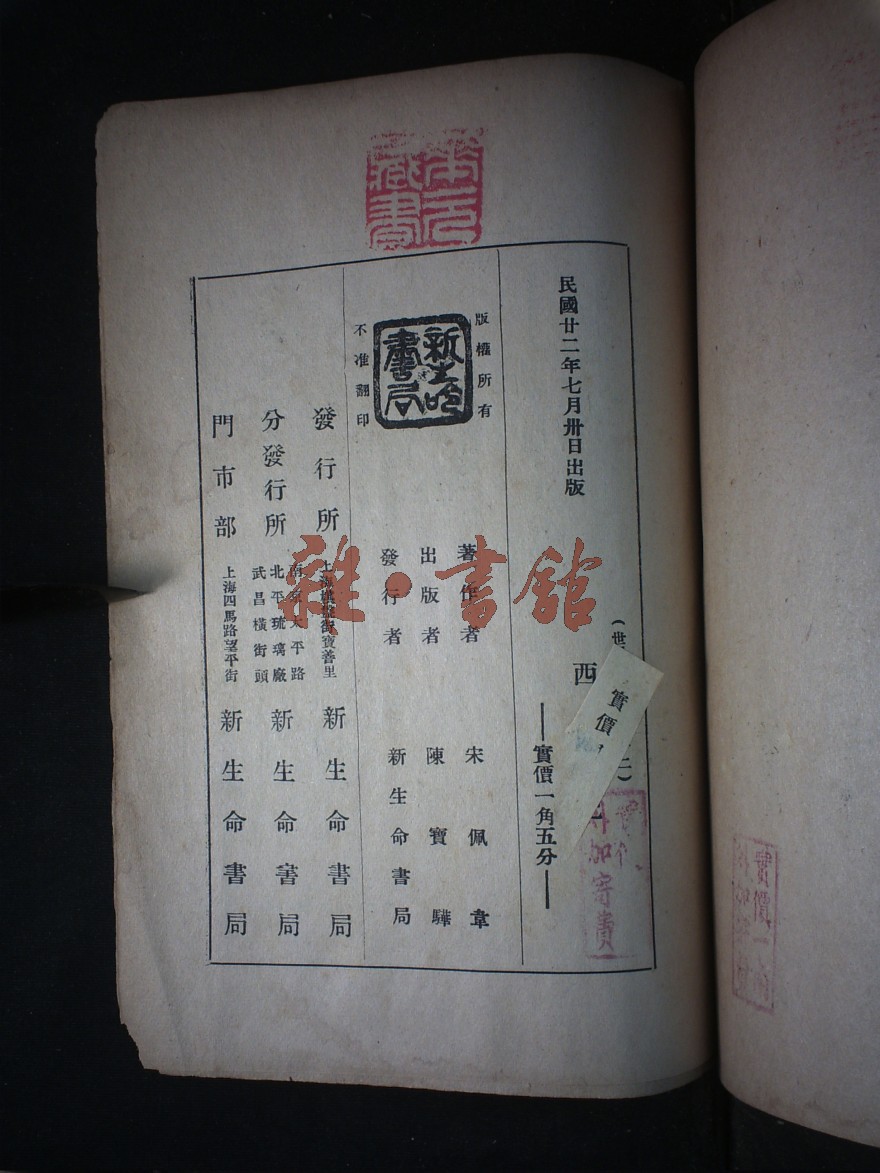 民國廿二年七月卅日出版
西
實價
實價一角五分
加寄費
版權所有
新生命書局
不准翻印
著作者 宋佩韋
出版者 陳寶驊
發行者 新生命書局
發行所 上海棋盤街寶善里 新生命書局
分發行所 南京太平路 北平琉璃廠 武昌橫街頭 新生命書局
門市部 上海四馬路望平街 新生命書局
藏書
雜·書館
實價一